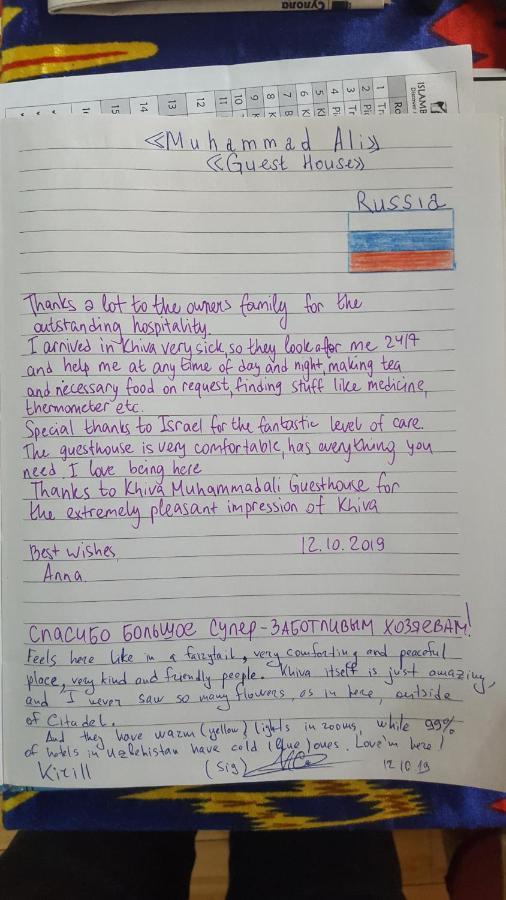 Сулола
ISLAMB
Discover
Ro
1 Tr
2 Pi
3 Tr
4 Pi
5 Kl
6 Kl
7 B
8 K
9
10
11
12
13
14
15
«Muhammad Ali»
«Guest House»
Russia
Thanks a lot to the owners family for the
outstanding hospitality.
I arrived in Khiva very sick, so they look afor me 24/7
and help me at any time of day and night, making tea
and necessary food on request, finding stuff like medicine,
thermometer etc.
Special thanks to Israel for the fantastic level of care.
The guesthouse is very comfortable, has everything you
need. I love being here
Thanks to Khiva Muhammadali Guesthouse for
the extremely pleasant impression of Khiva
Best wishes, 12.10.2019
Anna.
Спасибо большое супер-заботливым хозяевам!
Feels here like in a fairytail, very comforting and peaceful
place, very kind and friendly people. Khiva itself is just amazing,
and I never saw so many flowers, as in here, outside
of Citadel.
And they have warm (yellow) lights in rooms, while 99%
of hotels in Uzbekistan have cold (blue) ones. Love'm here!
Kirill (sig) 12.10.19